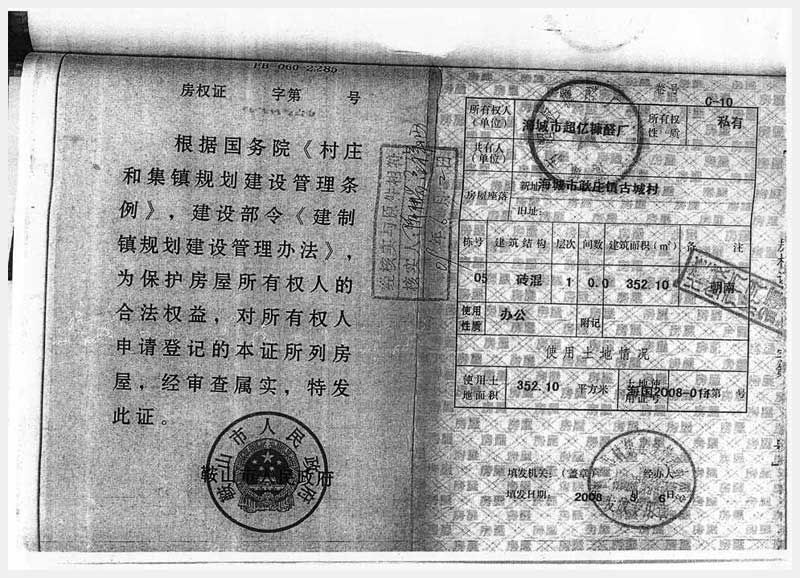 房权证 字第 号
根据国务院《村庄
和集镇规划建设管理条
例》,建设部令《建制
镇规划建设管理办法》,
为保护房屋所有权人的
合法权益,对所有权人
申请登记的本证所列房
屋,经审查属实,特发
此证。
鞍山市人民政府
鞍山市人民政府
经核实与原件相符
核实人
卷号
C-10
所有权人
(单位)
海城市超亿糠醛厂
所有权
性质
私有
共有人
(单位)
房屋座落
新址:海城市耿庄镇古城村
旧址:
栋号 建筑结构 层次 间数 建筑面积(㎡) 备注
05 砖混 1 0.0 352.10 朝南
使用
性质
办公
附记
使用土地情况
使用土
地面积
352.10 平方米
土地使
用证号
海国2008-011第 号
填发机关:(盖章) 经办人
填发日期: 2008 9 6日